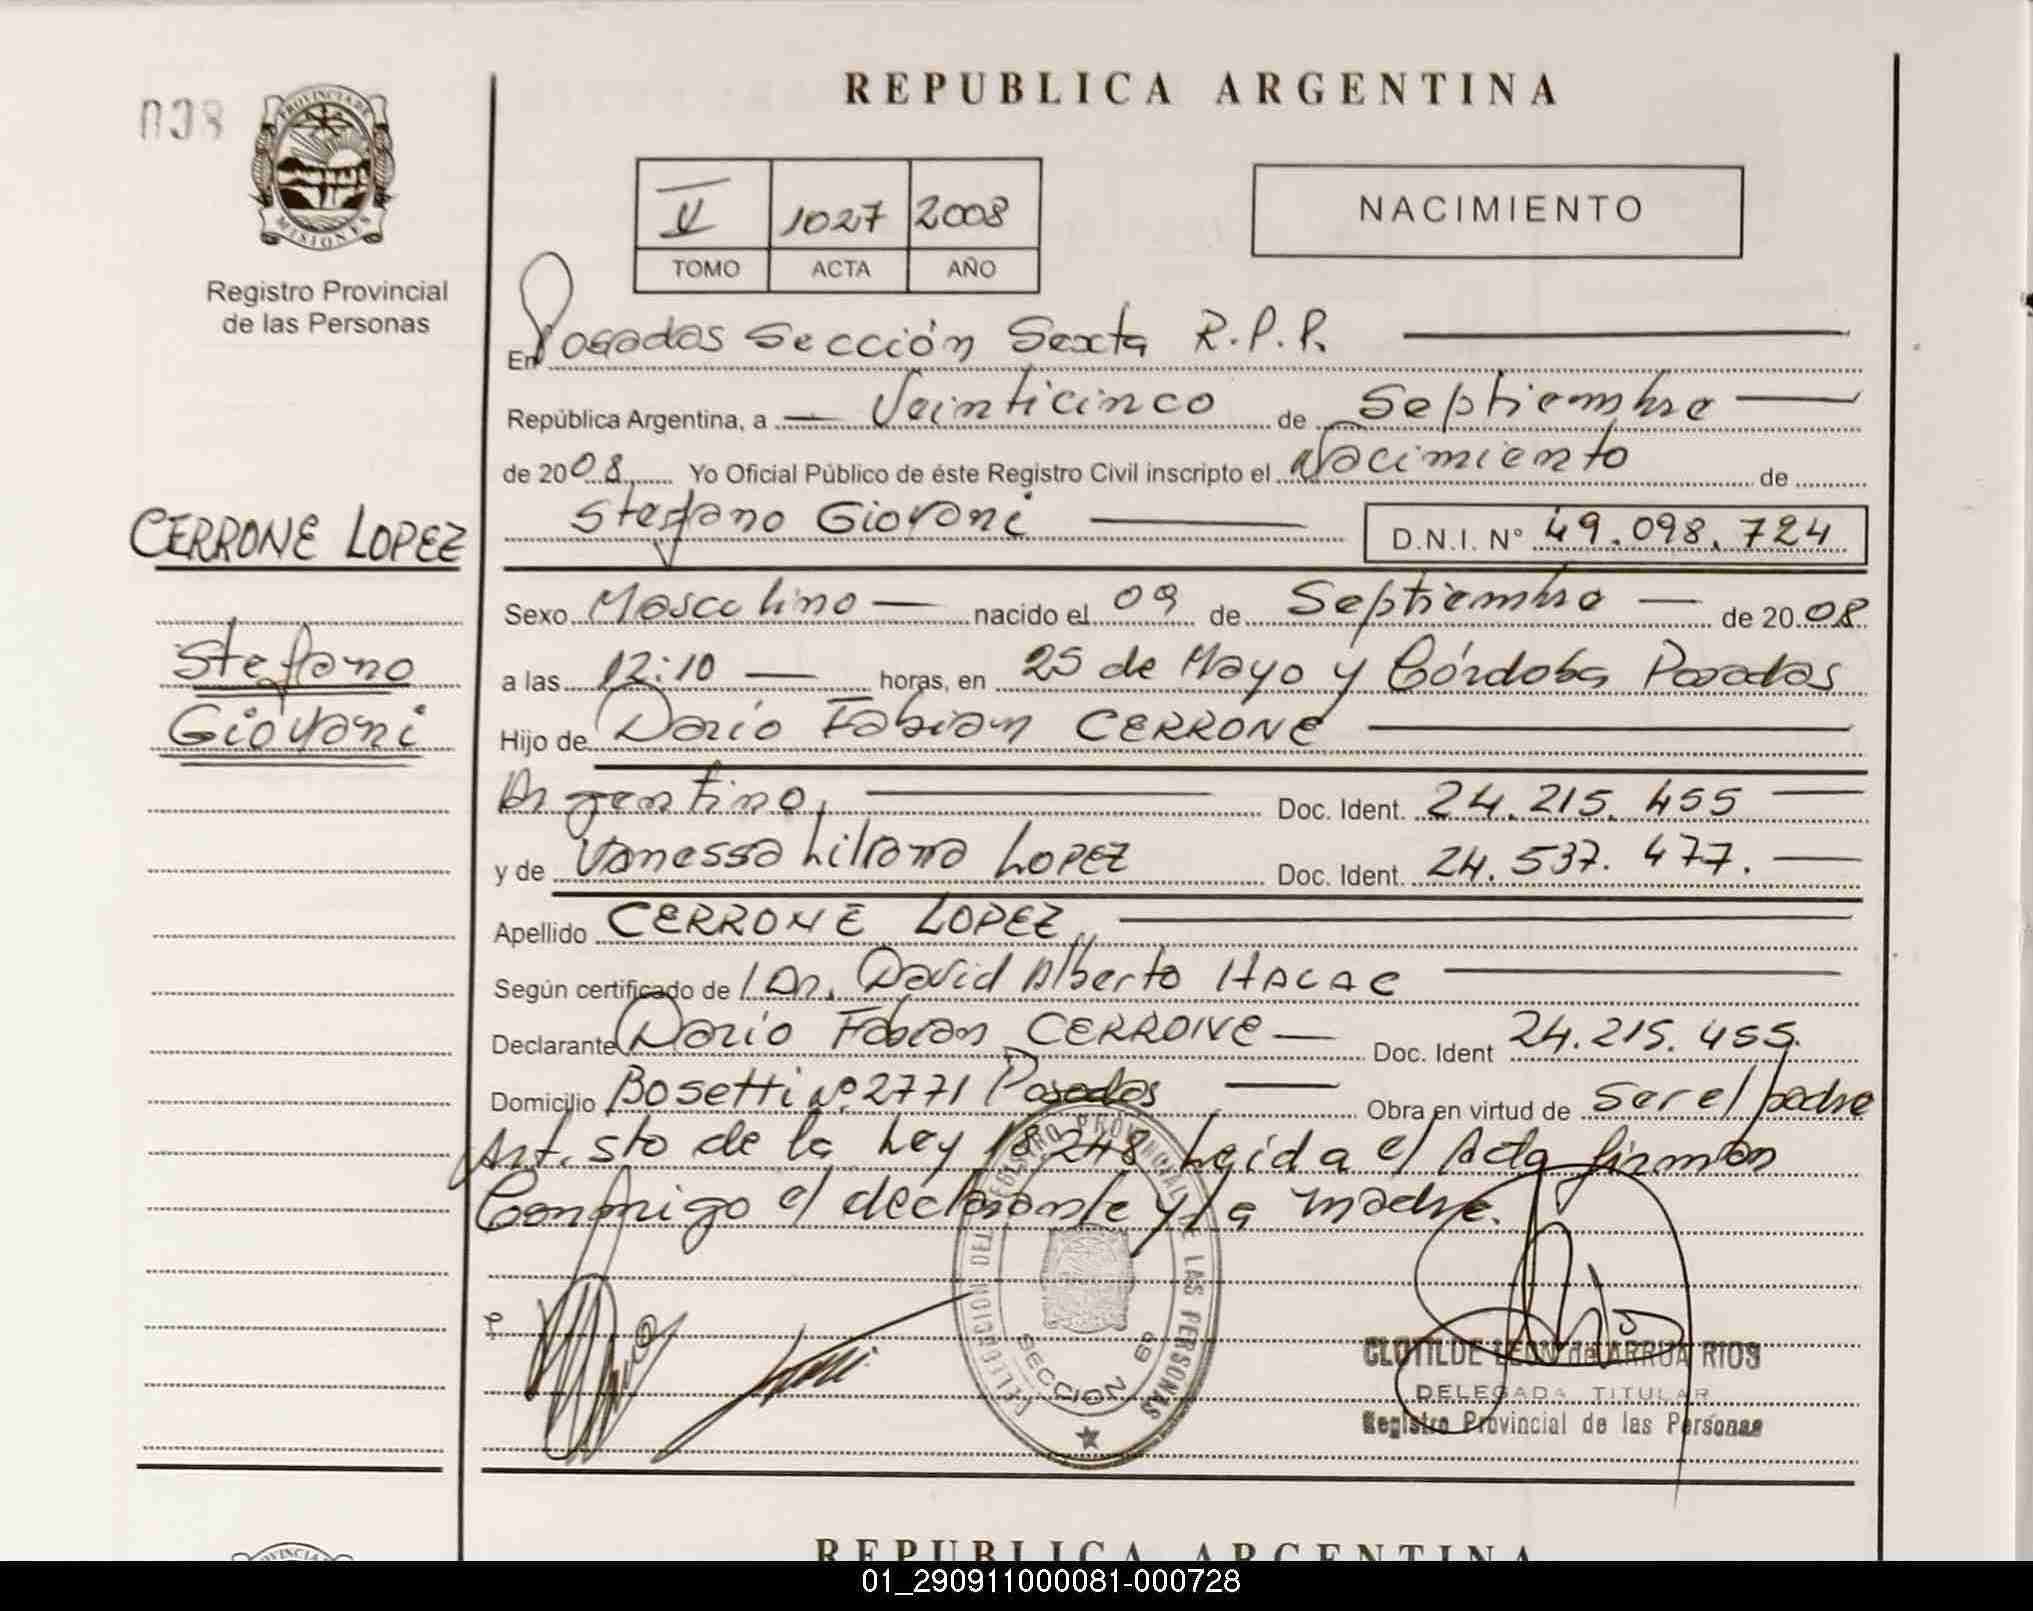 REPUBLICA ARGENTINA
008
PROVINCIA DE
MISIONES
Registro Provincial
de las Personas
V 1027 2008
TOMO ACTA AÑO
NACIMIENTO
En Posadas Sección Sexta R.P.P.
República Argentina, a Veinticinco de Septiembre
de 2008 Yo Oficial Público de éste Registro Civil inscripto el Nacimiento de
Stefano Giovani D.N.I. N° 49.098.724
CERRONE LOPEZ
Stefano
Giovani
Sexo Masculino nacido el 09 de Septiembre de 2008
a las 12:10 horas, en 25 de Mayo y Córdoba Posadas
Hijo de Darío Fabian CERRONE
Argentino, Doc. Ident. 24.215.455
y de Vanessa Liliana LOPEZ Doc. Ident. 24.537.477.
Apellido CERRONE LOPEZ
Según certificado de Dr. David Alberto HALAC
Declarante Darío Fabian CERRONE Doc. Ident 24.215.455.
Domicilio Bosetti Nº 2771 Posadas Obra en virtud de ser el padre
Art. 5to de la Ley 18248 Leída el Acta firman
Conmigo el declarante y la madre.
DELEGACION DEL REGISTRO PROVINCIAL DE LAS PERSONAS
SECCION 6ª
CLOTILDE LEON de ARRUA RIOS
DELEGADA TITULAR
Registro Provincial de las Personas
REPUBLICA ARGENTINA
01_290911000081-000728